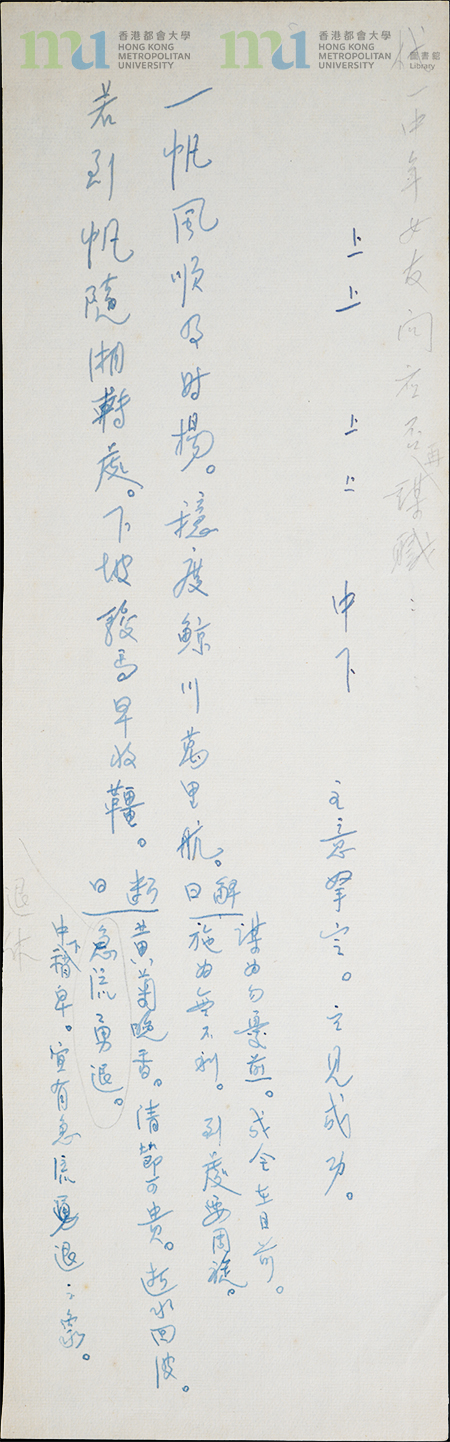 香港都會大學
HONG KONG
METROPOLITAN
UNIVERSITY
香港都會大學
HONG KONG
METROPOLITAN
UNIVERSITY
圖書館
Library
一中年女友問應否再謀職
上上 上上 中下
主意拏定。立見成功。
一帆風順及时揚。穩度鲸川萬里航。
若到帆隨湘轉處。下坡駿馬早收韁。
解曰
謀為勿憂煎。成全在目前。
施為無不利。到處要周旋。
断曰
黄菊晚香。清節可貴。逝水回波。
急流勇退。
中下籖卑。宜有急流勇退之象。
退休